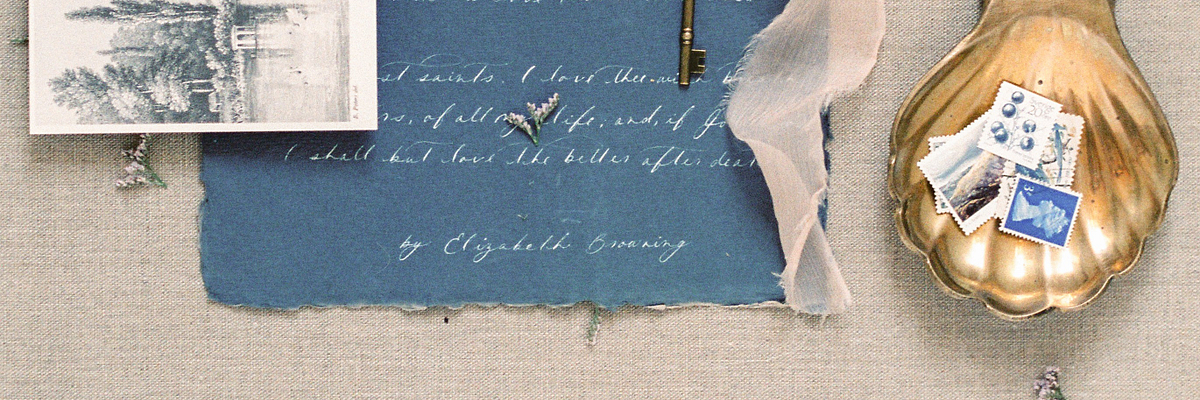 st saints. I love thee with
rs, of all my life; and, if Go
I shall but love thee better after deat
by Elizabeth Browning